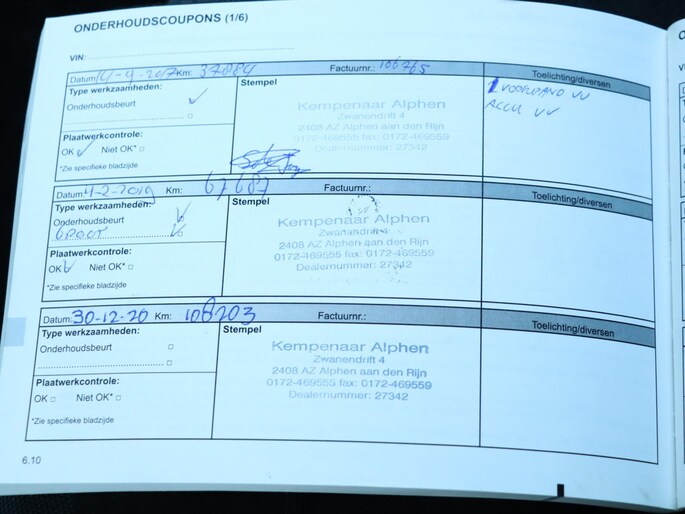 ONDERHOUDSCOUPONS (1/6)
VIN:
Datum: 14-9-2017 Km: 37884 Factuurnr.: 106765
Type werkzaamheden: Stempel Toelichting/diversen
Onderhoudsbeurt
Kempenaar Alphen
Zwanendrift 4
2408 AZ Alphen aan den Rijn
0172-469555 fax: 0172-469559
Dealernummer: 27342
ACCU
Plaatwerkcontrole:
OK Niet OK*
*Zie specifieke bladzijde
Datum: 4-2-2019 Km: 67687 Factuurnr.:
Type werkzaamheden: Stempel Toelichting/diversen
Onderhoudsbeurt
GROOT
Kempenaar Alphen
Zwanendrift 4
2408 AZ Alphen aan den Rijn
0172-469555 fax: 0172-469559
Dealernummer: 27342
Plaatwerkcontrole:
OK Niet OK*
*Zie specifieke bladzijde
Datum: 30-12-20 Km: 108203 Factuurnr.:
Type werkzaamheden: Stempel Toelichting/diversen
Onderhoudsbeurt
Kempenaar Alphen
Zwanendrift 4
2408 AZ Alphen aan den Rijn
0172-469555 fax: 0172-469559
Dealernummer: 27342
Plaatwerkcontrole:
OK Niet OK*
*Zie specifieke bladzijde
6.10